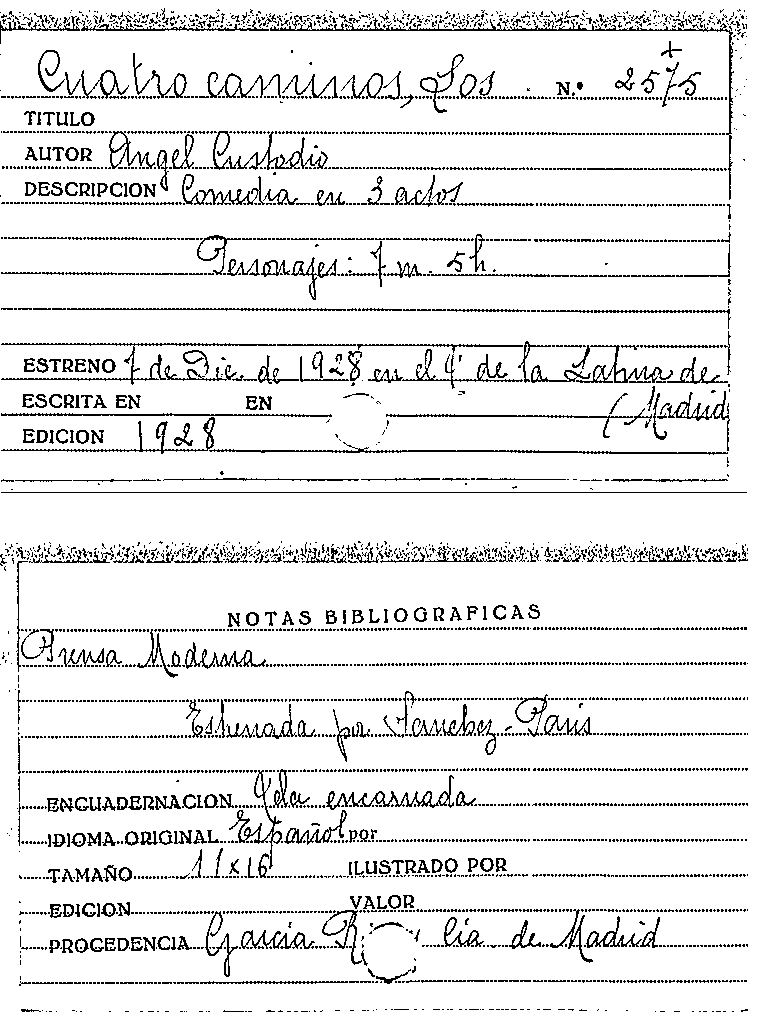 Cuatro caminos, Los N.º 2575
TITULO
AUTOR Angel Custodio
DESCRIPCION Comedia en 3 actos
Personajes: 7 m. 5h.
ESTRENO 7 de Dic. de 1928 en el T. de la Latina de
ESCRITA EN EN (Madrid
EDICION 1928
NOTAS BIBLIOGRAFICAS
Prensa Moderna
Estrenada por Sanchez-Paris
ENCUADERNACION Tela encarnada
IDIOMA ORIGINAL Español por
TAMAÑO 11x16 ILUSTRADO POR
EDICION VALOR
PROCEDENCIA Garcia de Madrid